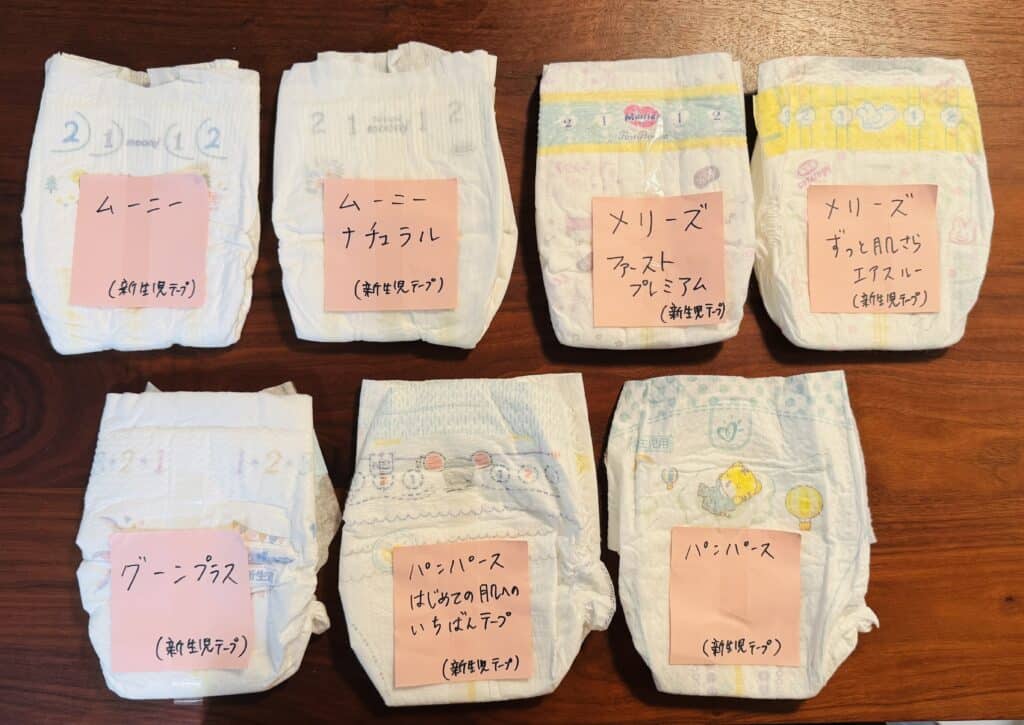 2 1 moony 1 2
ムーニー
(新生児テープ)
2 1 1 2
ムーニー
ナチュラル
(新生児テープ)
2 1 Merries 1 2
First Premium
メリーズ
ファースト
プレミアム
(新生児テープ)
2 1 1 2
メリーズ
ずっと肌さら
エアスルー
(新生児テープ)
3 2 1 1 2 3
新生児
グーンプラス
(新生児テープ)
1 1
パンパース
はじめての肌への
いちばんテープ
(新生児テープ)
パンパース
(新生児テープ)